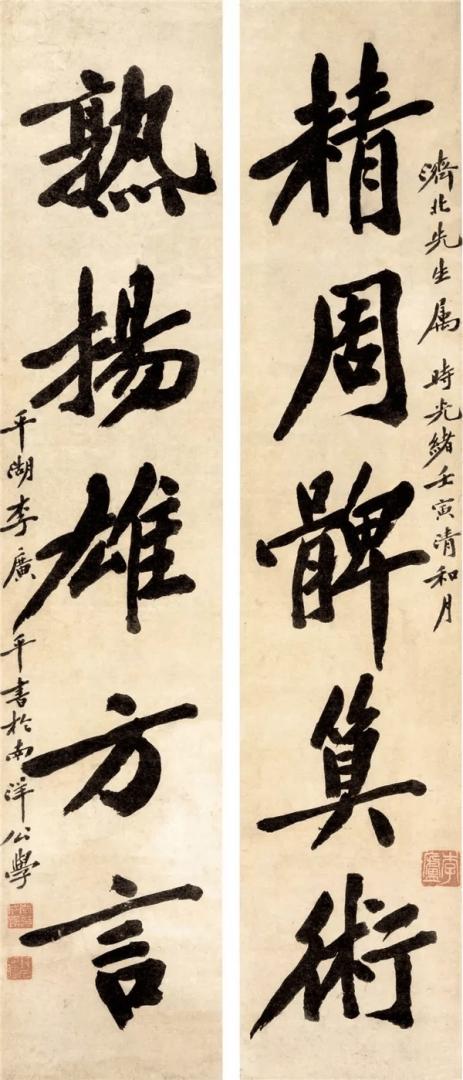 濟北先生属 時光緒壬寅清和月
精周髀算術
熟揚雄方言
平湖李廣平書於南洋公學
李廬